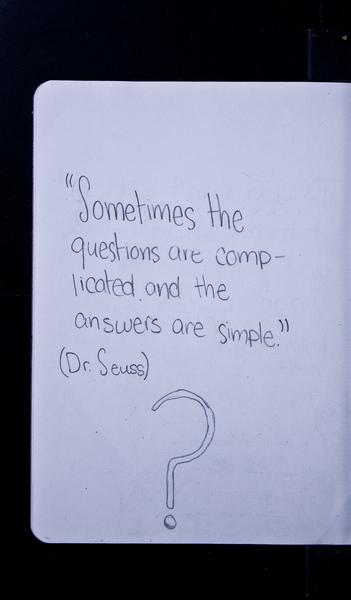 "Sometimes the
questions are comp-
licated and the
answers are simple."
(Dr. Seuss)
?